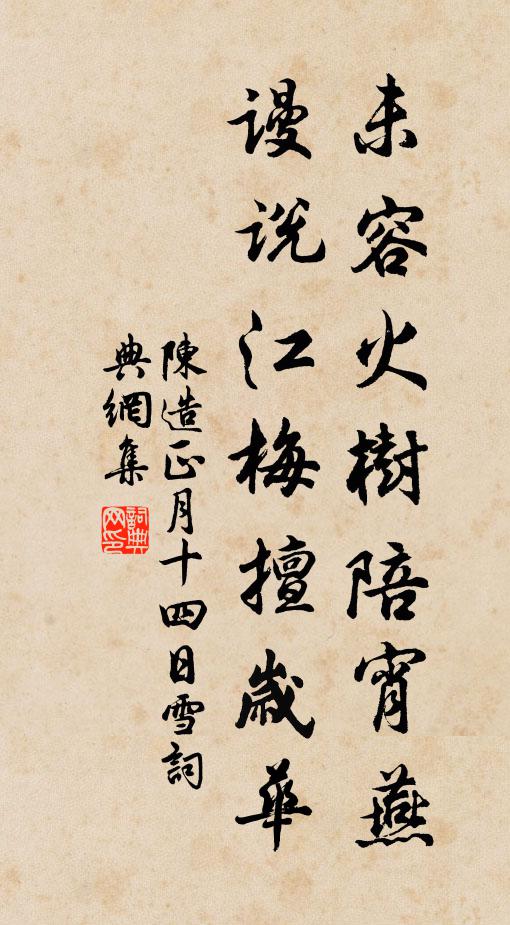 未容火樹陪宵燕
谩说江梅擅歲華
陳造正月十四日雪詞
典網集
詞典网印